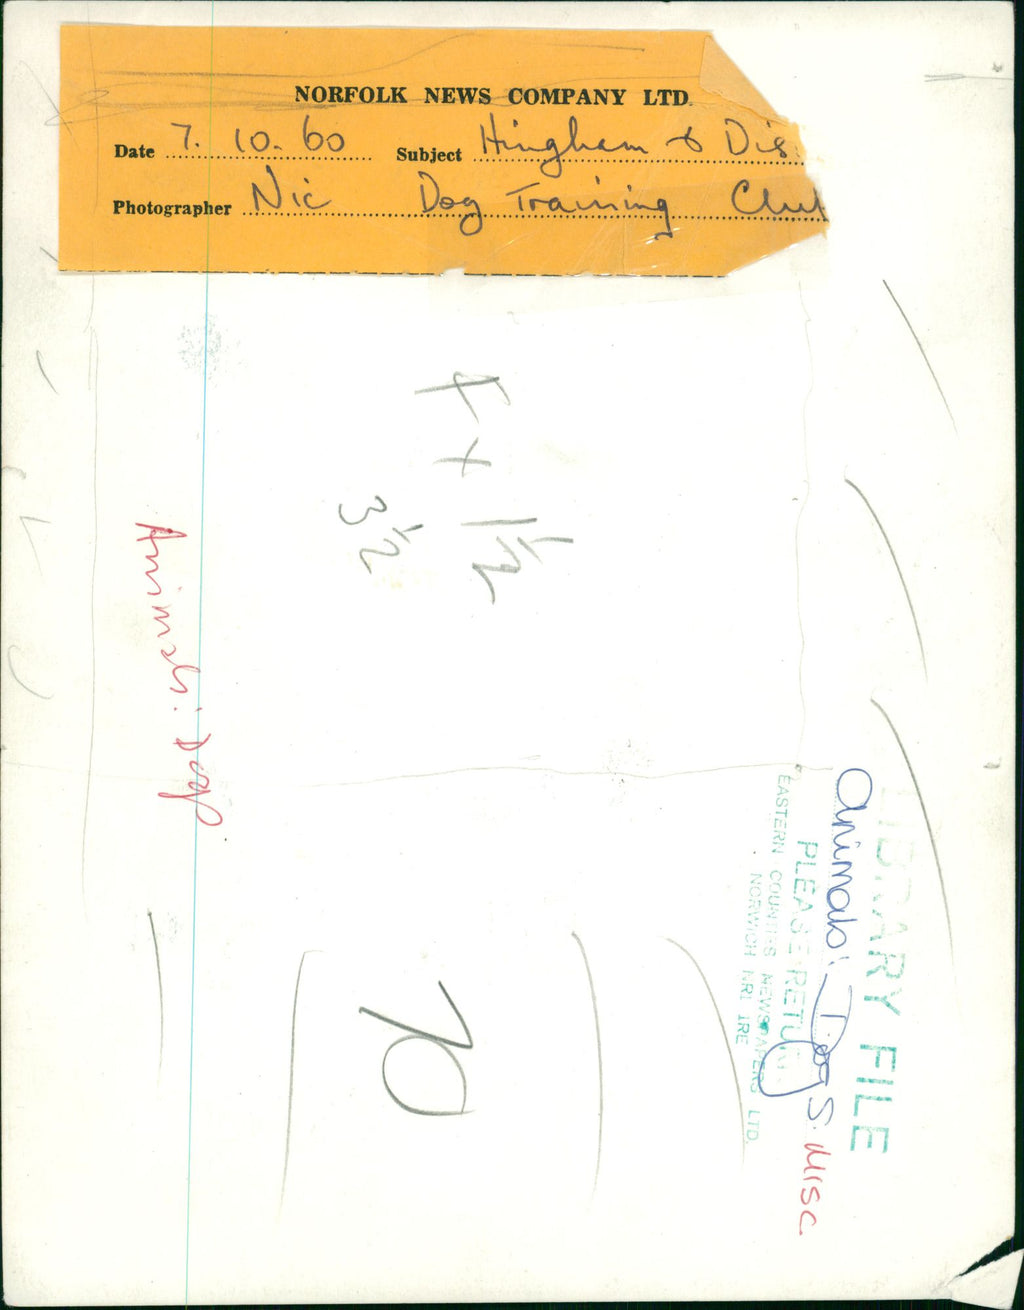 NORFOLK NEWS COMPANY LTD.
Date 7. 10. 60 Subject Hingham & Dis
Photographer Nic Dog Training Club
4 x 1½
3½
Animals: Dogs
70
LIBRARY FILE
Animals: Dogs. MISC
PLEASE RETURN
EASTERN COUNTIES NEWSPAPERS LTD.
NORWICH NR1 1RE